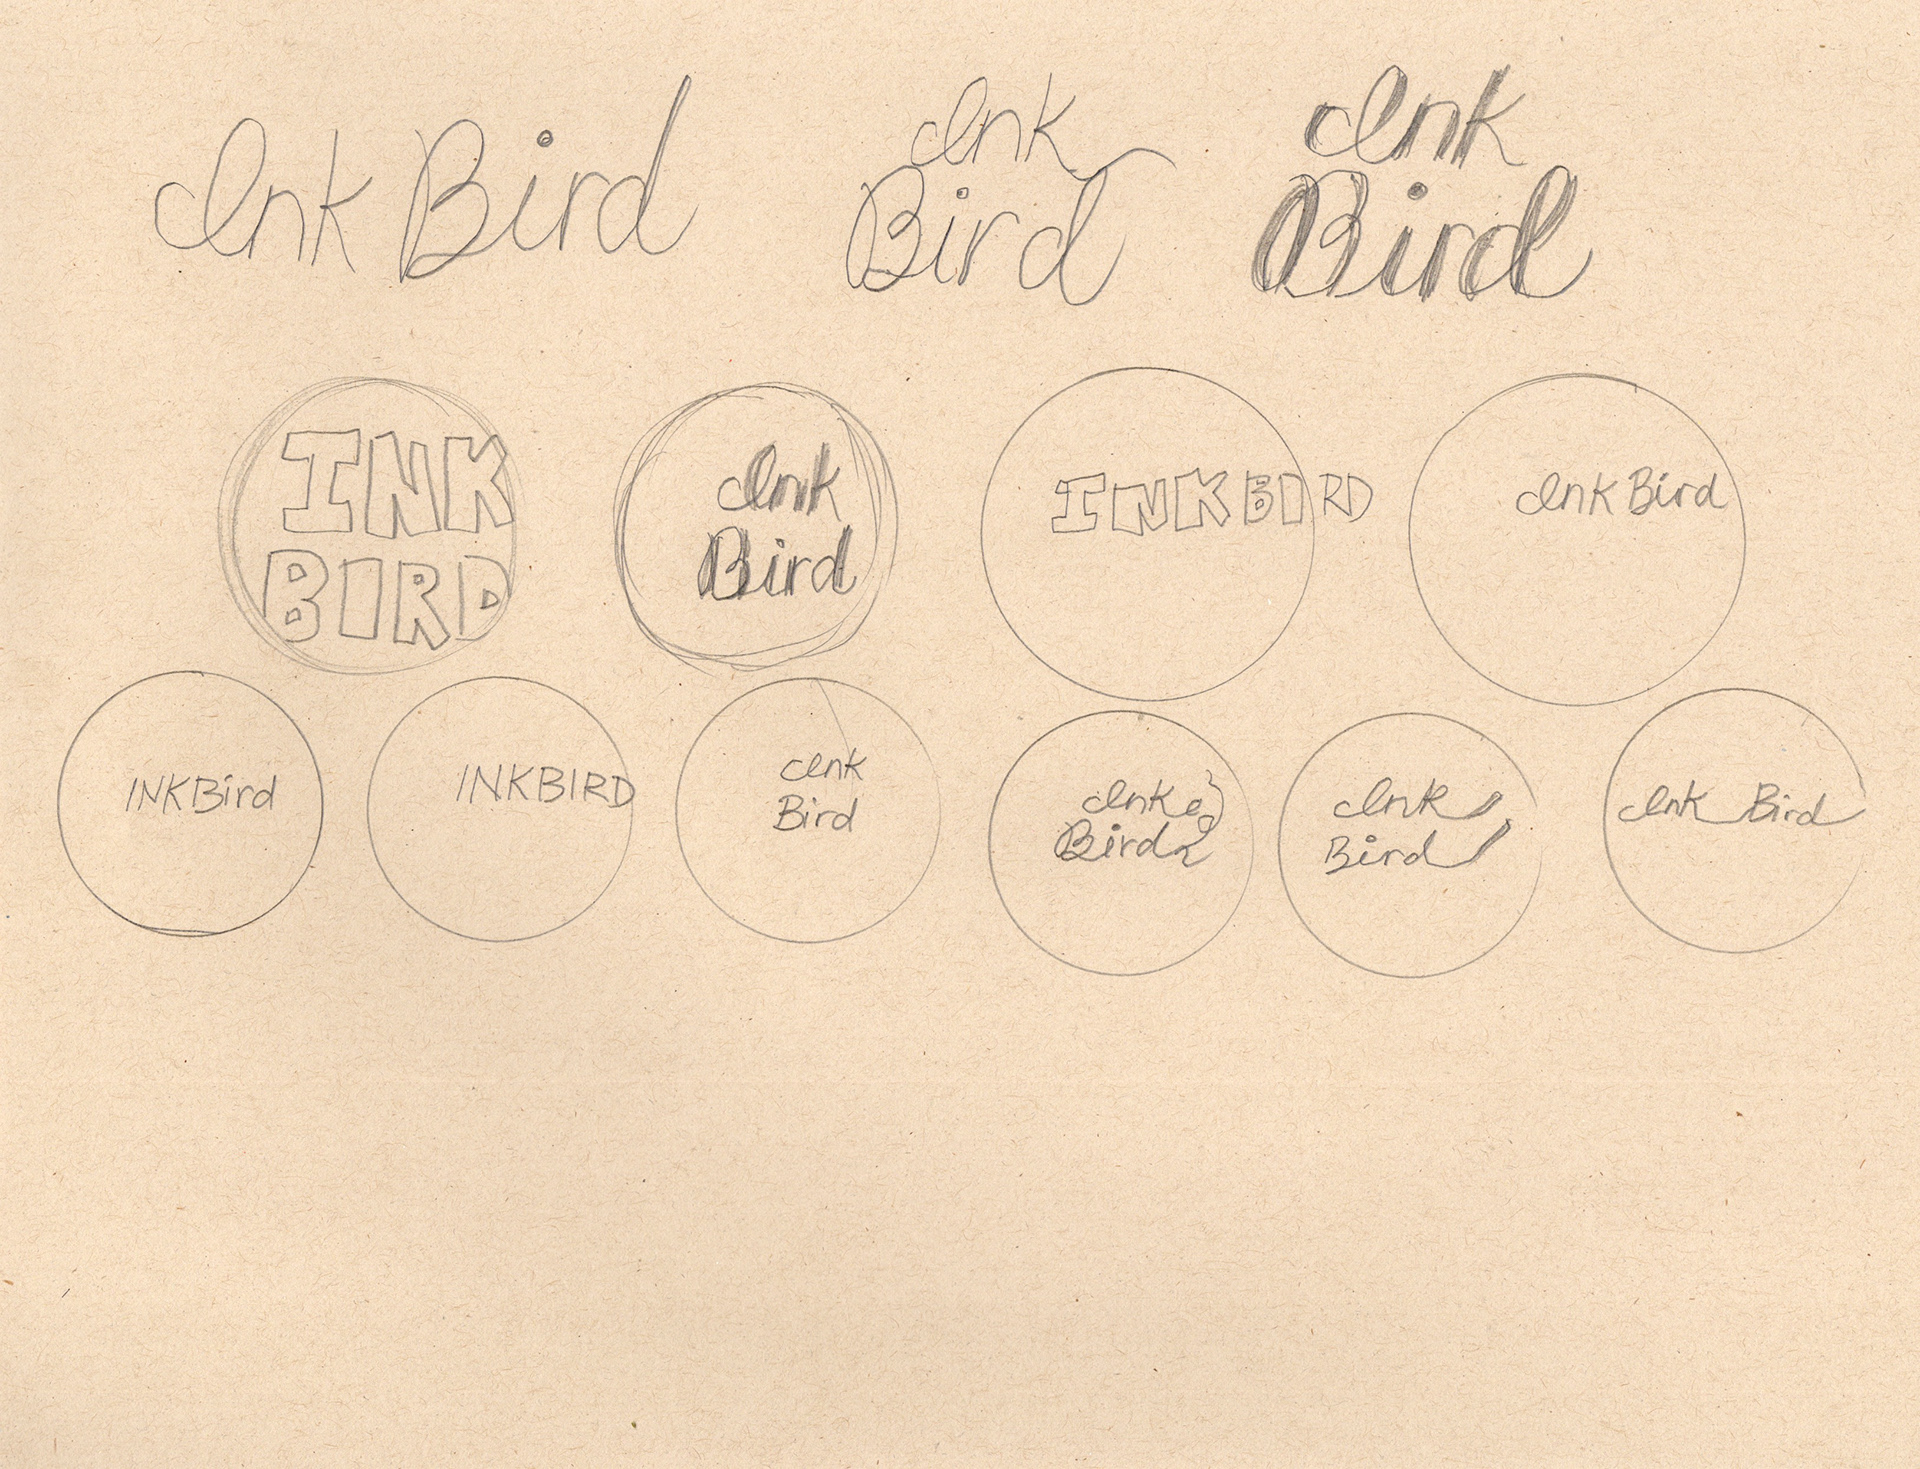 Ink Bird
Ink
Bird
Ink
Bird
INK
BIRD
Ink
Bird
INKBIRD
Ink Bird
INKBird
INKBIRD
Ink
Bird
Ink
Bird
Ink
Bird
Ink Bird